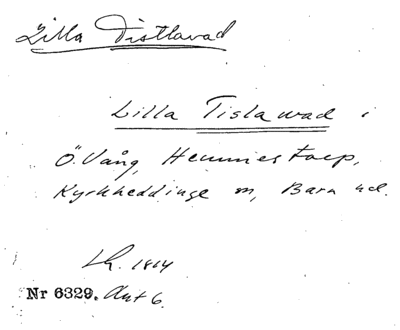 Lilla Tistlavad
Lilla Tislawad i
Ö. Vång, Hemmestorp,
Kyrkheddinge sn, Bara hd.
Lk. 1814
Nr 6329. Ant 6.